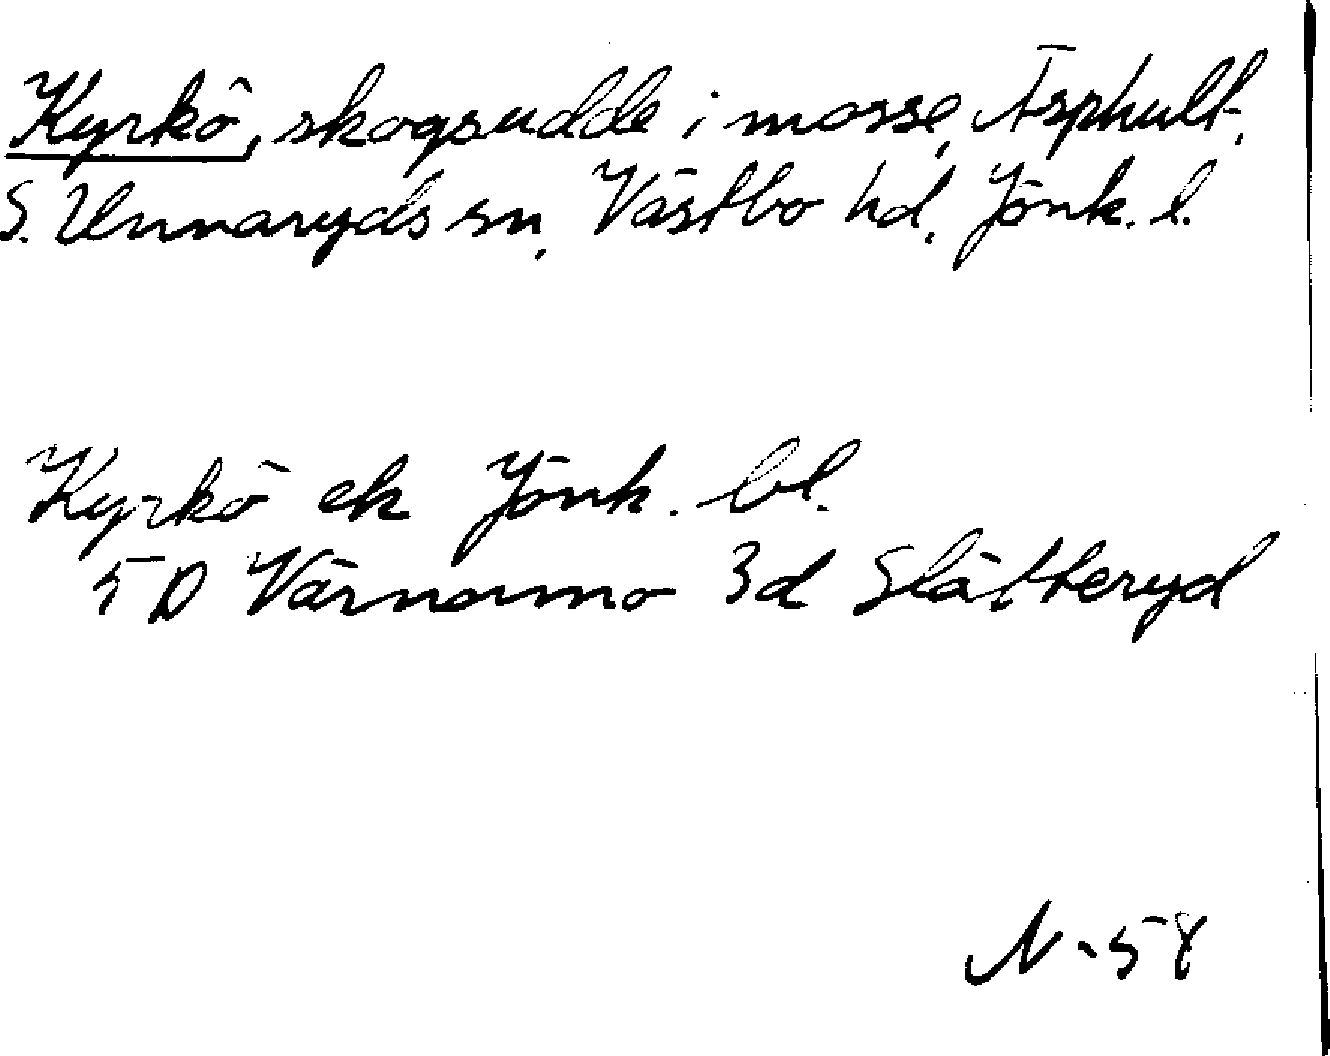 Kyrkö, skogsudde i mosse, Äsphult,
S. Unnaryds sn, Västbo hd, Jönk. l.
Kyrkö ek Jönk. bl.
5 D Värnamo 3d Slätteryd
N-58